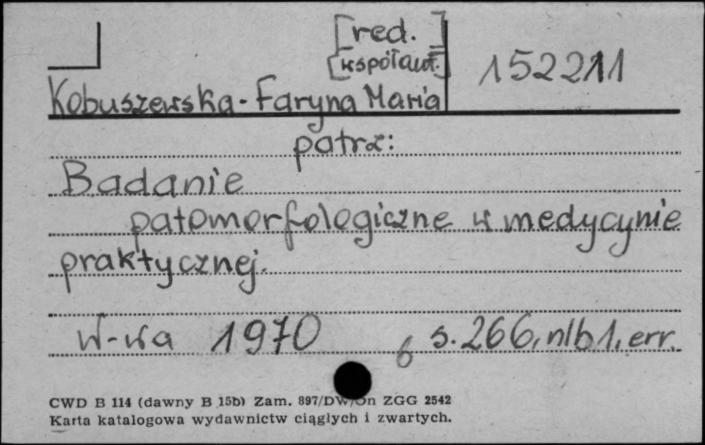 [red.]
[współaut.] 152211
Kobuszewska-Faryna Maria
patrz:
Badanie
patomorfologiczne w medycynie
praktycznej.
W-wa 1970 6 s.266, nlb1, err.
CWD B 114 (dawny B 15b) Zam. 897/DW/On ZGG 2542
Karta katalogowa wydawnictw ciągłych i zwartych.